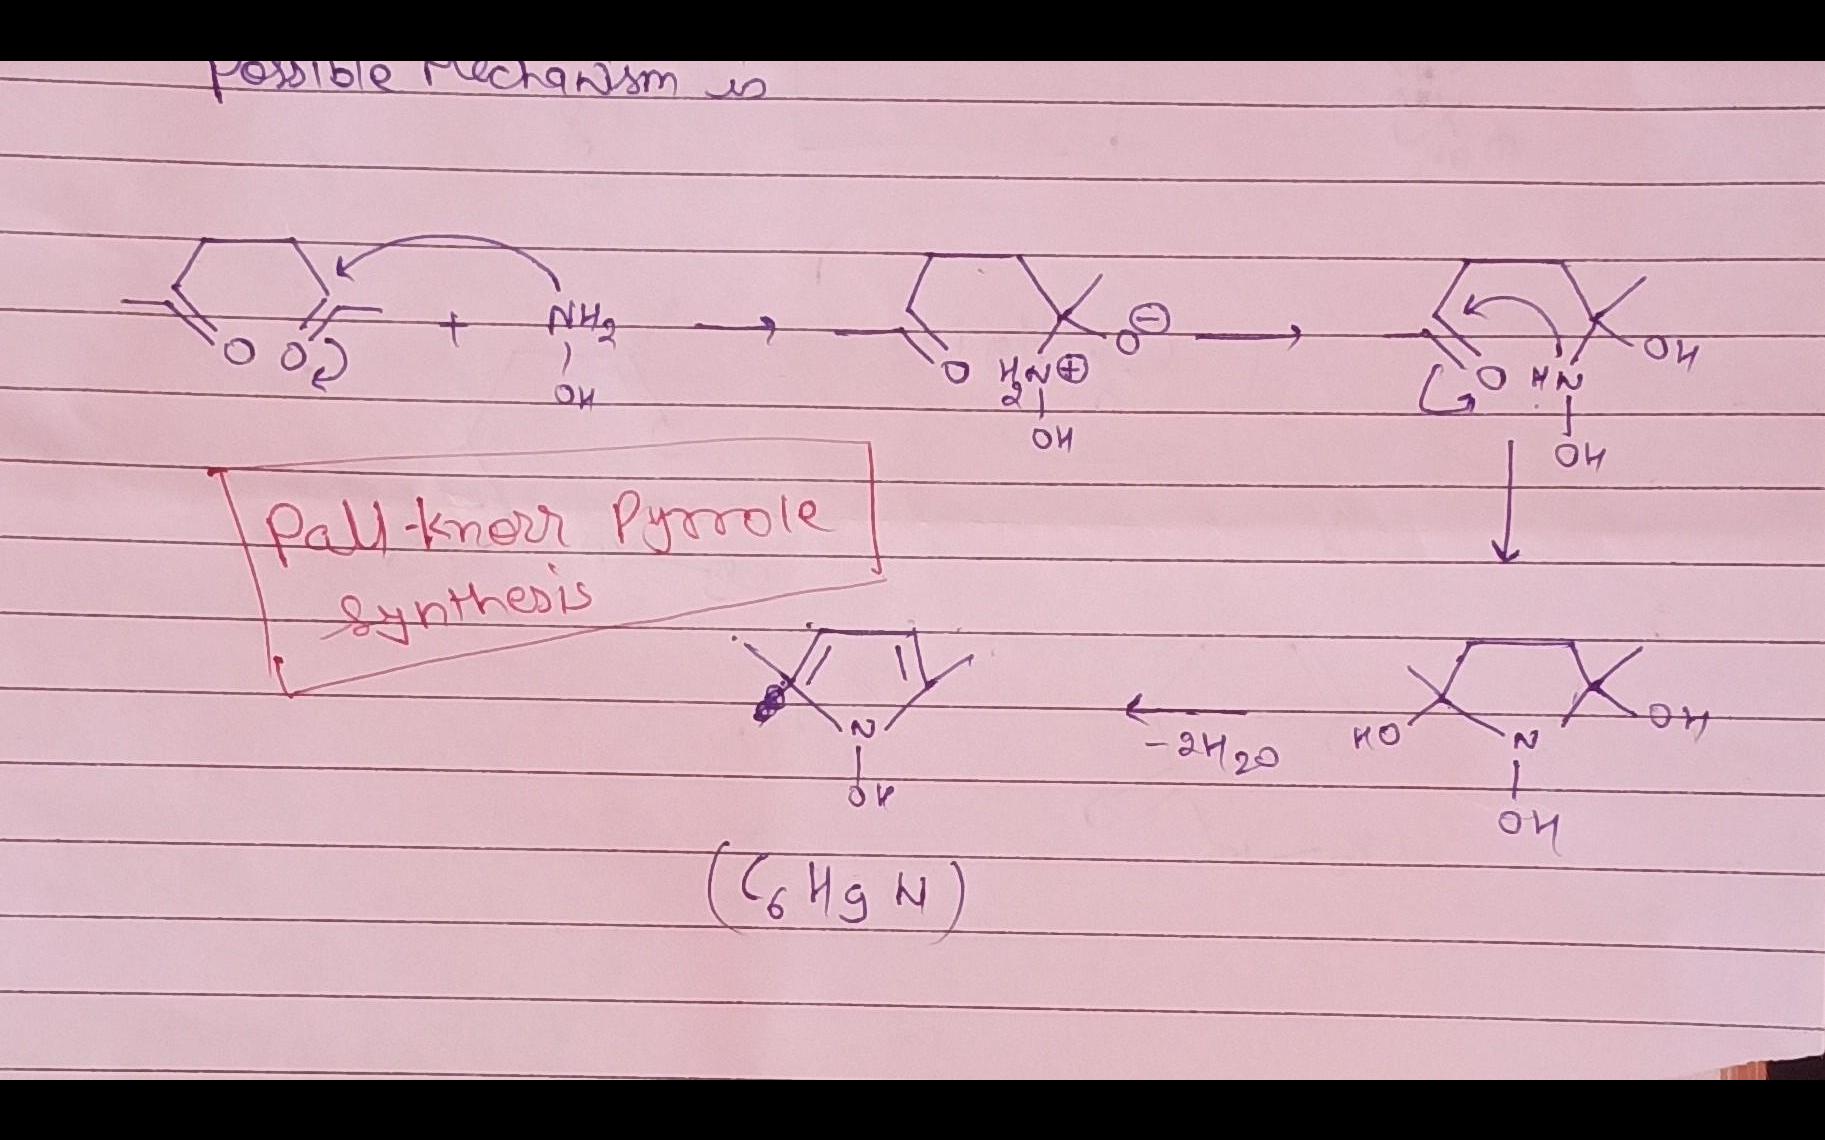 Possible Mechanism is
O O + NH2 O H2N⊕ O⊖ O HN OH
OH OH OH
Pall-knorr Pyrrole
synthesis
N HO N OH
-2H2O
OH OH
(C6H9N)